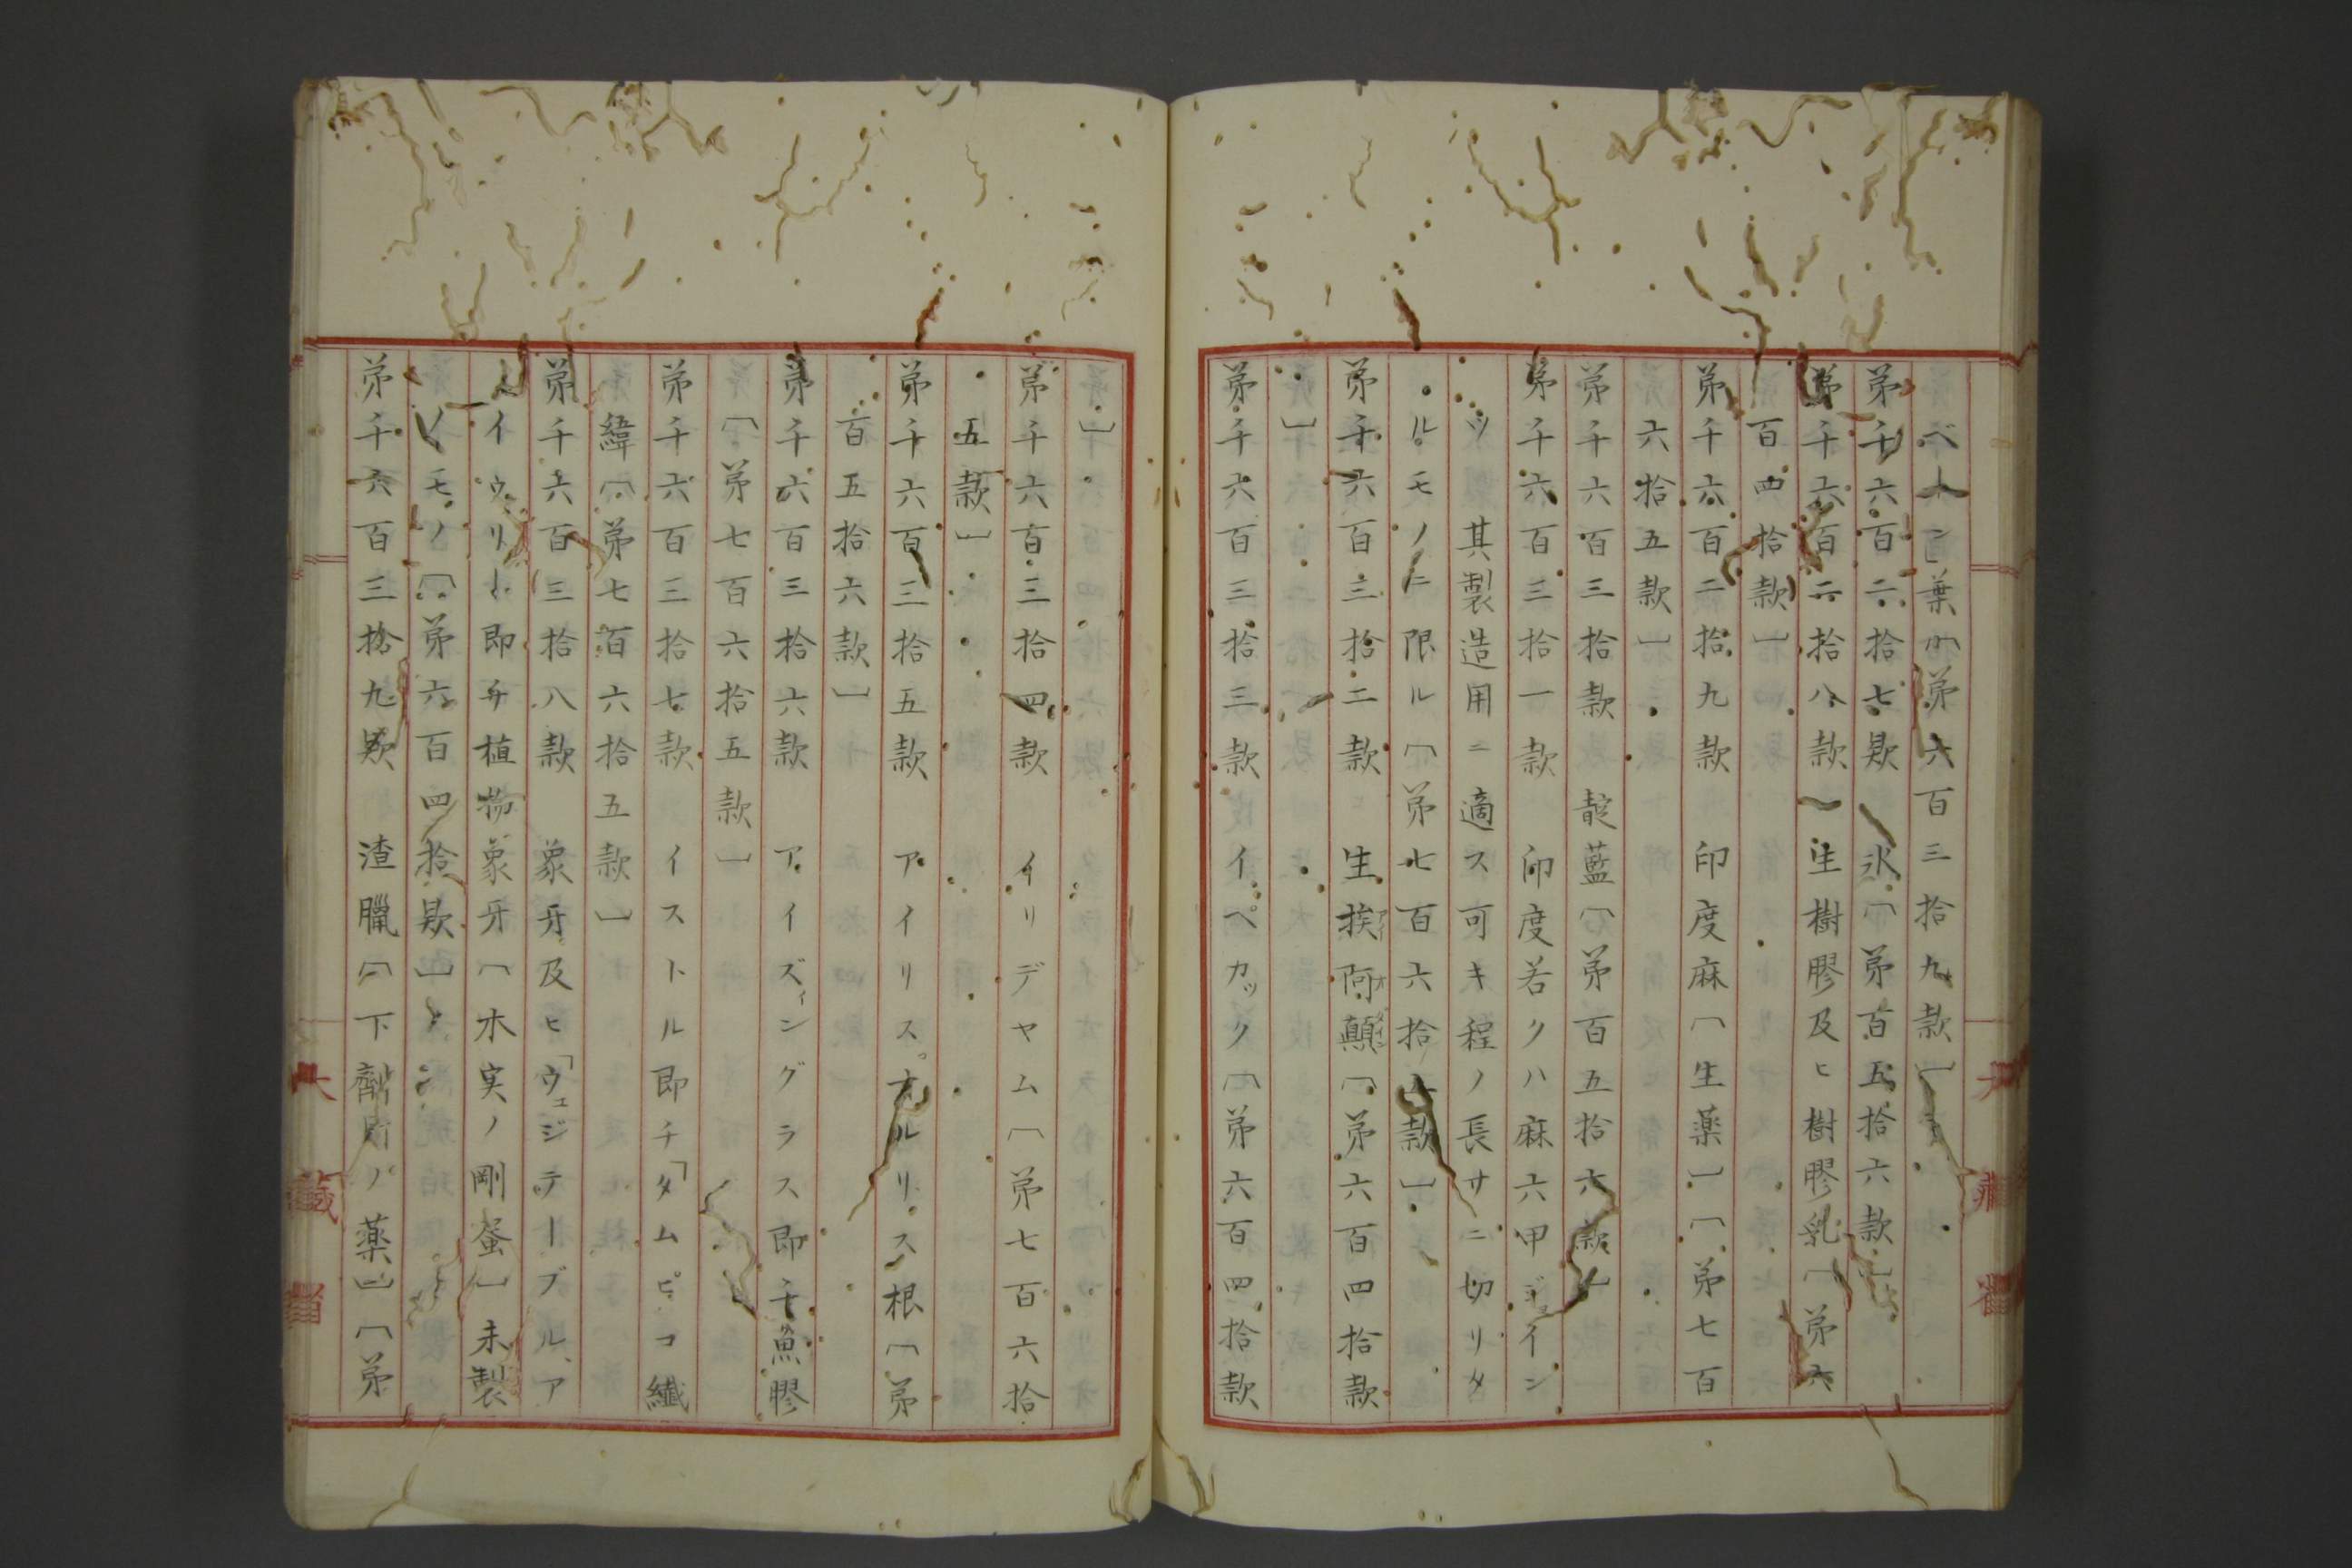 ベーン葉〔第六百三拾九款〕
第千六百二拾七款　氷〔第百五拾六款〕
第千六百二拾八款　生樹膠及ヒ樹膠乳〔第六
百四拾款〕
第千六百二拾九款　印度麻〔生薬〕〔第七百
六拾五款〕
第千六百三拾款　靛藍〔第百五拾六款〕
第千六百三拾一款　印度若クハ麻六甲ヂュイン
ツ　其製造用ニ適ス可キ程ノ長サニ切リタ
ルモノニ限ル〔第七百六拾款〕
第千六百三拾二款　生挨阿顛〔第六百四拾款
〕
第千六百三拾三款　イペカック〔第六百四拾款
〕
第千六百三拾四款　イリデヤム〔第七百六拾
五款〕
第千六百三拾五款　アイリス。オルリス根〔第
百五拾六款〕
第千六百三拾六款　アイズィングラス即チ魚膠
〔第七百六拾五款〕
第千六百三拾七款　イストル即チ「タムピコ繊
緯〔第七百六拾五款〕
第千六百三拾八款　象牙及ヒ「ウェジテーブル、ア
イウリト即チ植物象牙〔木実ノ剛蛋〕未製
ノモノ〔第六百四拾款〕
第千六百三拾九款　渣臘〔下劑ノ薬〕〔第
大藏省
大藏省